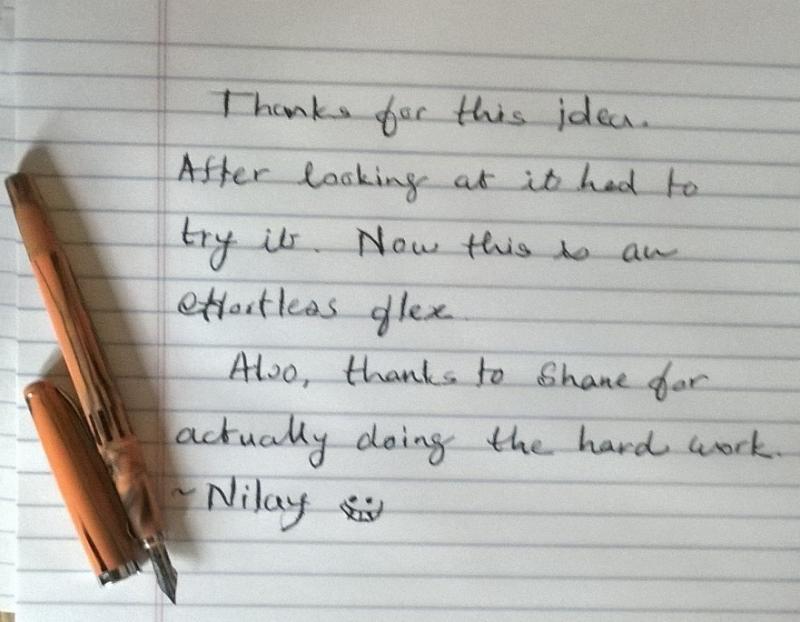 Thanks for this idea.
After looking at it had to
try it. Now this is an
effortless flex.
Also, thanks to Shane for
actually doing the hard work.
~ Nilay